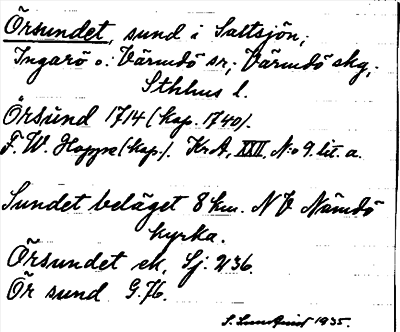 Örsundet, sund i Saltsjön;
Ingarö o. Värmdö sn; Värmdö skg;
Sthlms l.
Örsund 1714 (kop. 1740).
F. W. Hoppe (kop.). KrA, XXII, N:o 9. lit. a.
Sundet beläget 8 km. NV Nämdö
kyrka.
Örsundet ek, Sj: 236.
Ör sund G. 76.
S. Lundkvist 1935.